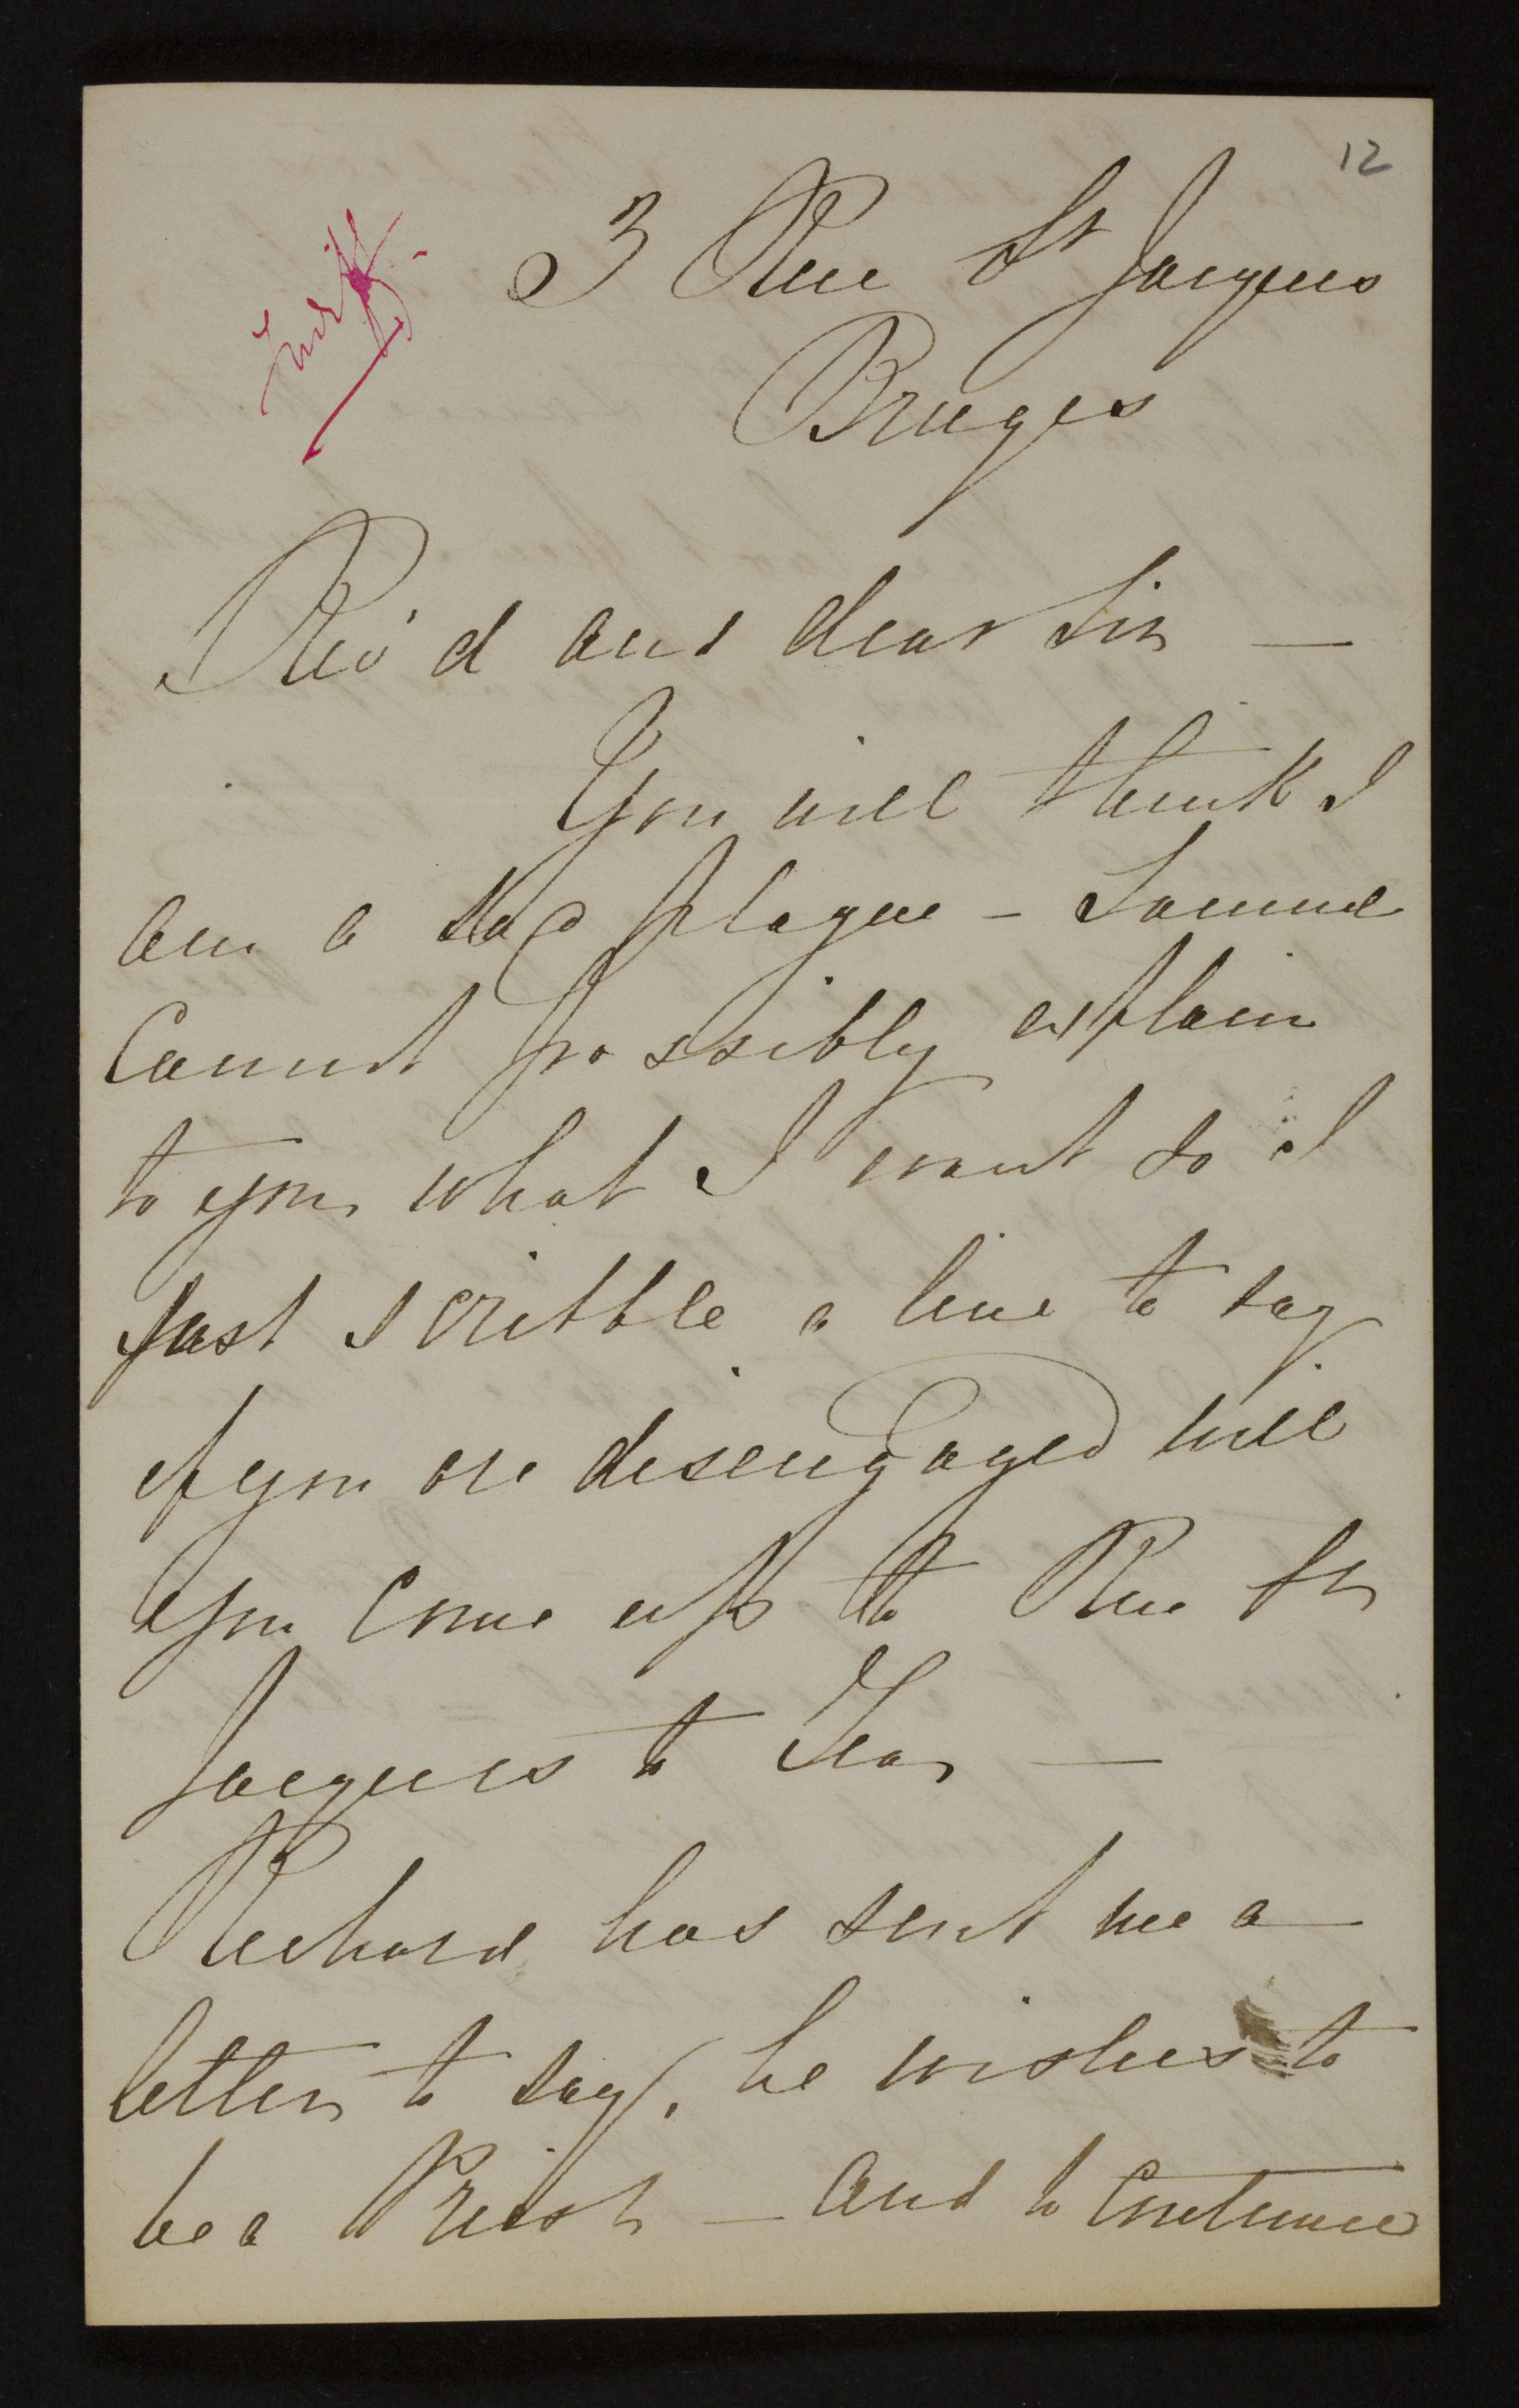 12
3 Rue St Jacques
Bruges
Rev'd and dear Sir —
You will think I
am a sad plague – Samuel
Cannot possibly explain
to you what I want so I
just scribble a line to say
if you are disengaged will
you come up to Rue St
Jacques to Tea —
Richard has sent me a
letter to say, he wishes to
be a Priest — and to Continue